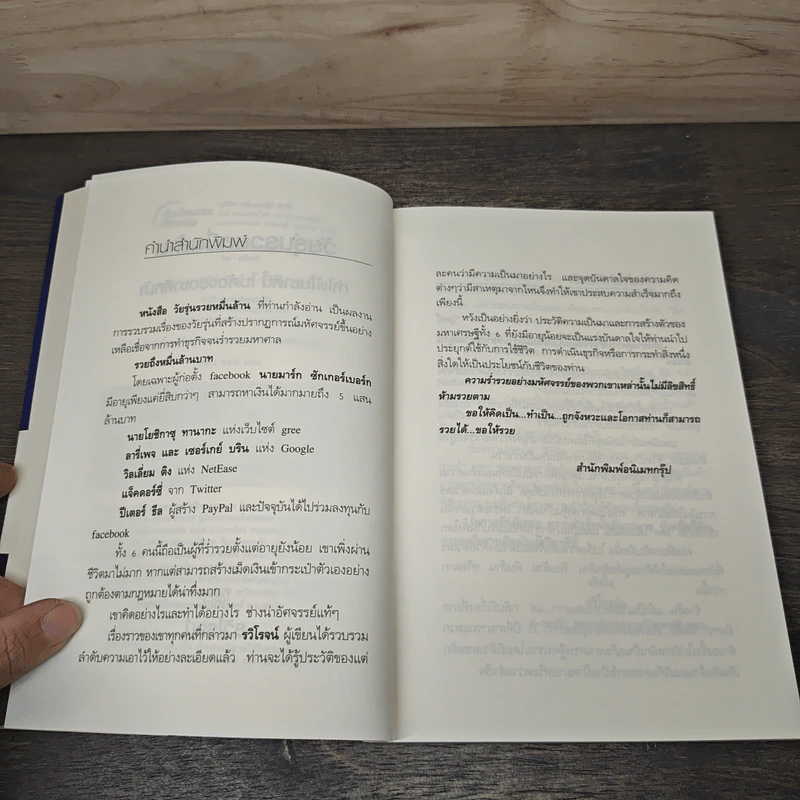 คำนำสำนักพิมพ์
หนังสือ วัยรุ่นรวยหมื่นล้าน ที่ท่านกำลังอ่าน เป็นผลงาน
การรวบรวมเรื่องของวัยรุ่นที่สร้างปรากฏการณ์มหัศจรรย์ขึ้นอย่าง
เหลือเชื่อจากการทำธุรกิจจนร่ำรวยมหาศาล
รวยถึงหมื่นล้านบาท
โดยเฉพาะผู้ก่อตั้ง facebook นายมาร์ก ซักเกอร์เบอร์ก
มีอายุเพียงแค่ยี่สิบกว่าๆ สามารถหาเงินได้มากมายถึง 5 แสน
ล้านบาท
นายโยชิกาซุ ทานากะ แห่งเว็บไซต์ gree
ลารี่เพจ และ เซอร์เกย์ บริน แห่ง Google
วิลเลี่ยม ติง แห่ง NetEase
แจ็คดอร์ซี่ จาก Twitter
ปีเตอร์ ธีล ผู้สร้าง PayPal และปัจจุบันได้ไปร่วมลงทุนกับ
facebook
ทั้ง 6 คนนี้ถือเป็นผู้ที่ร่ำรวยตั้งแต่อายุยังน้อย เขาเพิ่งผ่าน
ชีวิตมาไม่มาก หากแต่สามารถสร้างเม็ดเงินเข้ากระเป๋าตัวเองอย่าง
ถูกต้องตามกฎหมายได้น่าทึ่งมาก
เขาคิดอย่างไรและทำได้อย่างไร ช่างน่าอัศจรรย์แท้ๆ
เรื่องราวของเขาทุกคนที่กล่าวมา รวิโรจน์ ผู้เขียนได้รวบรวม
ลำดับความเอาไว้ให้อย่างละเอียดแล้ว ท่านจะได้รู้ประวัติของแต่
ละคนว่ามีความเป็นมาอย่างไร และจุดบันดาลใจของความคิด
ต่างๆว่ามีสาเหตุมาจากไหนจึงทำให้เขาประสบความสำเร็จมากถึง
เพียงนี้
หวังเป็นอย่างยิ่งว่า ประวัติความเป็นมาและการสร้างตัวของ
มหาเศรษฐีทั้ง 6 ที่ยังมีอายุน้อยจะเป็นแรงบันดาลใจให้ท่านนำไป
ประยุกต์ใช้กับการใช้ชีวิต การดำเนินธุรกิจหรือการกระทำสิ่งหนึ่ง
สิ่งใดให้เป็นประโยชน์กับชีวิตของท่าน
ความร่ำรวยอย่างมหัศจรรย์ของพวกเขาเหล่านั้นไม่มีลิขสิทธิ์
ห้ามรวยตาม
ขอให้คิดเป็น...ทำเป็น...ถูกจังหวะและโอกาสท่านก็สามารถ
รวยได้...ขอให้รวย
สำนักพิมพ์อนิเมทกรุ๊ป